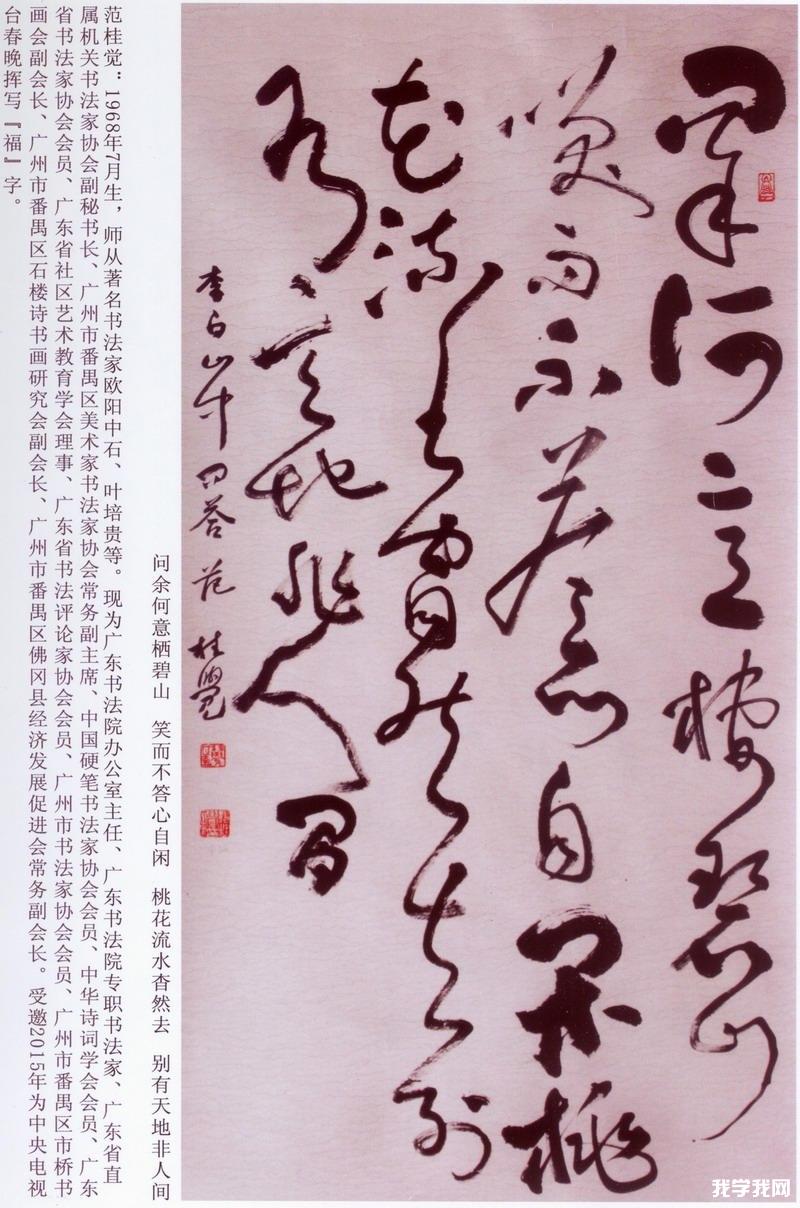 问余何意栖碧山
笑而不答心自闲桃
花流水窅然去别
有天地非人间
李白山中问答 范桂觉
问余何意栖碧山 笑而不答心自闲 桃花流水杳然去 别有天地非人间
范桂觉：1968年7月生，师从著名书法家欧阳中石、叶培贵等。现为广东书法院办公室主任、广东书法院专职书法家、广东省直
属机关书法家协会副秘书长、广州市番禺区美术家书法家协会常务副主席、中国硬笔书法家协会会员、中华诗词学会会员、广东
省书法家协会会员、广东省社区艺术教育学会理事、广东省书法评论家协会会员、广州市书法家协会会员、广州市番禺区市桥书
画会副会长、广州市番禺区石楼诗书画研究会副会长、广州市番禺区佛冈县经济发展促进会常务副会长。受邀2015年为中央电视
台春晚挥写『福』字。
我学我网